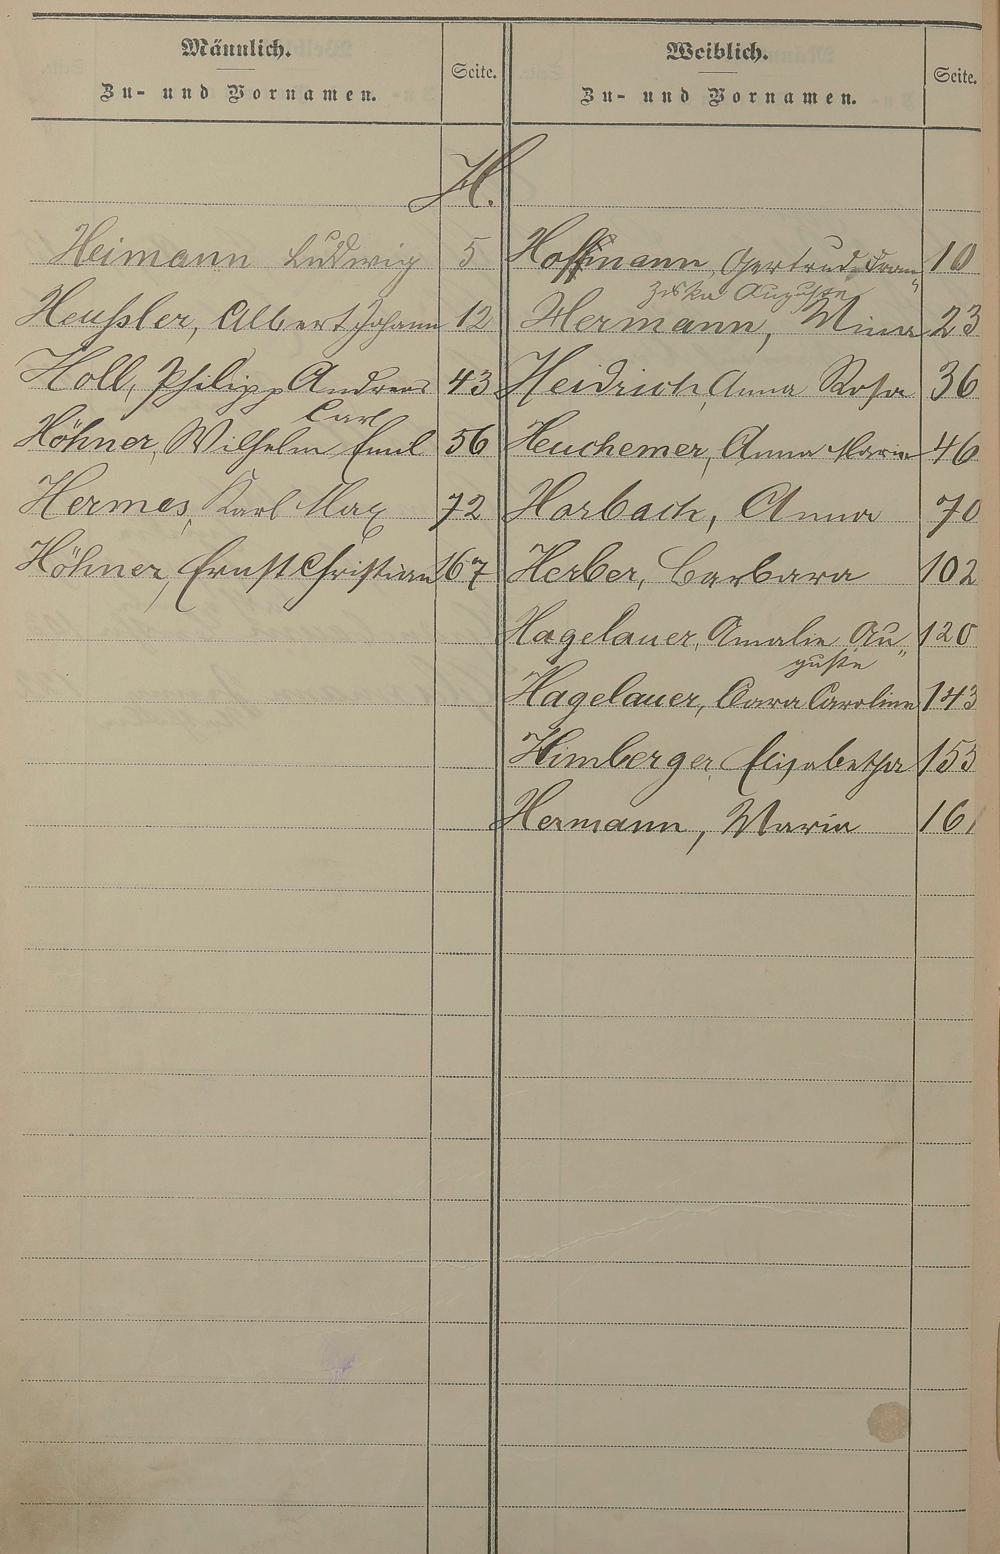 Männlich.
Zu- und Vornamen.
Seite.
Weiblich.
Zu- und Vornamen.
Seite.
H.
Heimann Ludwig 5
Heußler, Albert Johann 12
Holl, Philipp Andreas 43
Carl
Höhner, Wilhelm Emil 56
Hermes, Karl Max 72
Höhner, Ernst Christian 167
Hoffmann, Gertrud Fran„ 10
ziska Auguste
Hermann, Mina 23
Heidrich, Anna Rosa 36
Heuchemer, Anna Maria 46
Horbach, Anna 70
Herber, Barbara 102
Hagelauer, Amalie Au„ 120
guste
Hagelauer, Clara Caroline 143
Himberger, Elisabetha 153
Hermann, Maria 161